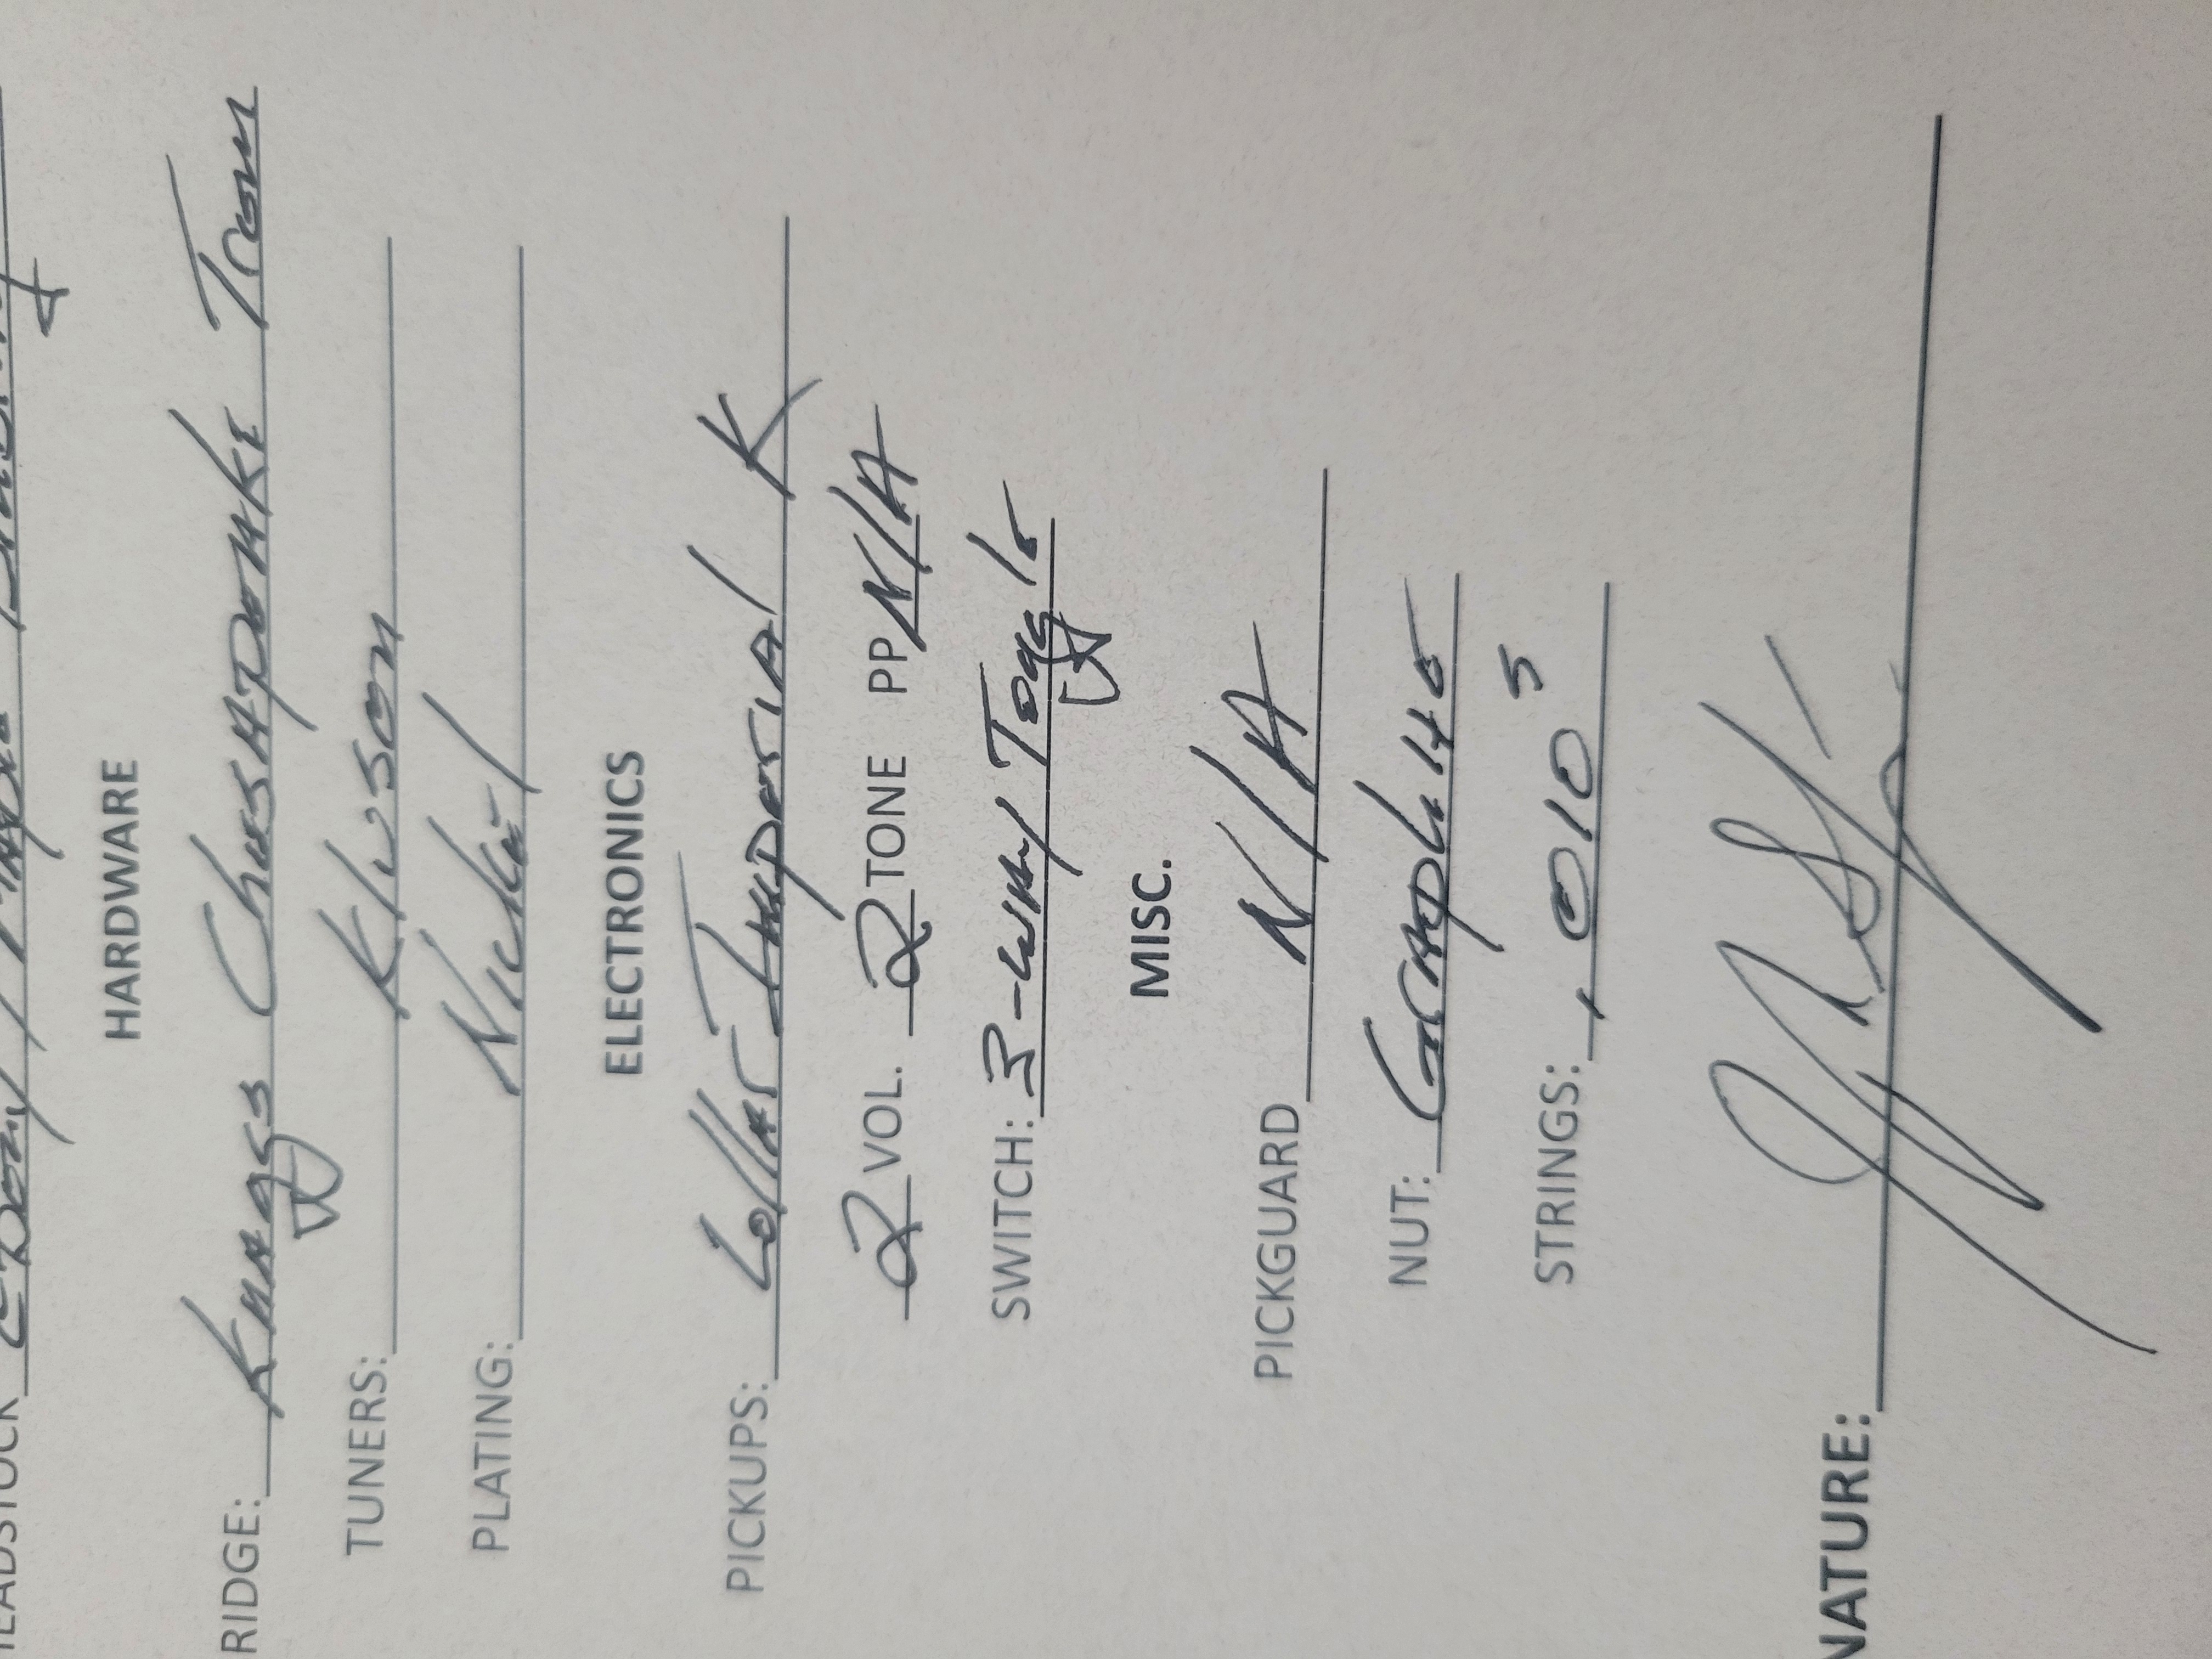 HEADSTOCK Ebony
HARDWARE
RIDGE: Knaggs Chesapeake Trem
TUNERS: Kluson
PLATING: Nickel
ELECTRONICS
PICKUPS: Lollar Imperial K
2 VOL. 2 TONE PP N/A
SWITCH: 3-way Toggle
MISC.
PICKGUARD N/A
NUT: Graphite
STRINGS: .010s
NATURE: